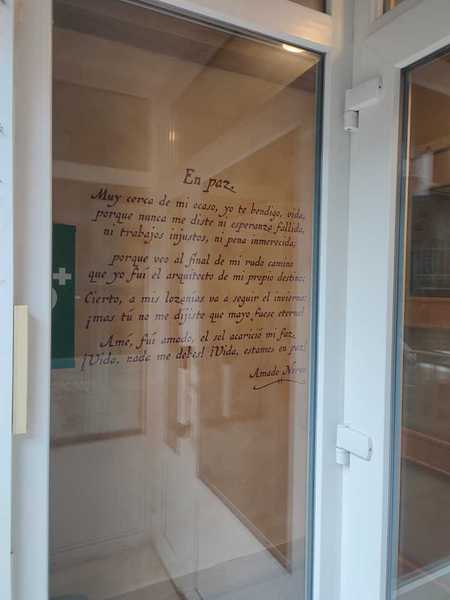 En paz
Muy cerca de mi ocaso, yo te bendigo, vida,
porque nunca me diste ni esperanza fallida,
ni trabajos injustos, ni pena inmerecida;
porque veo al final de mi rudo camino
que yo fuí el arquitecto de mi propio destino;
Cierto, a mis lozanías va a seguir el invierno:
¡mas tú no me dijiste que mayo fuese eterno!
Amé, fuí amado, el sol acarició mi faz.
¡Vida, nada me debes! ¡Vida, estamos en paz!
Amado Nervo